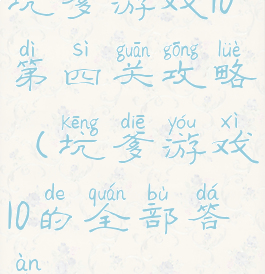 坑爹游戏10
dì sì guān gōng lüè
第四关攻略
kēng diē yóu xì
(坑爹游戏
de quán bù dá
10的全部答
àn